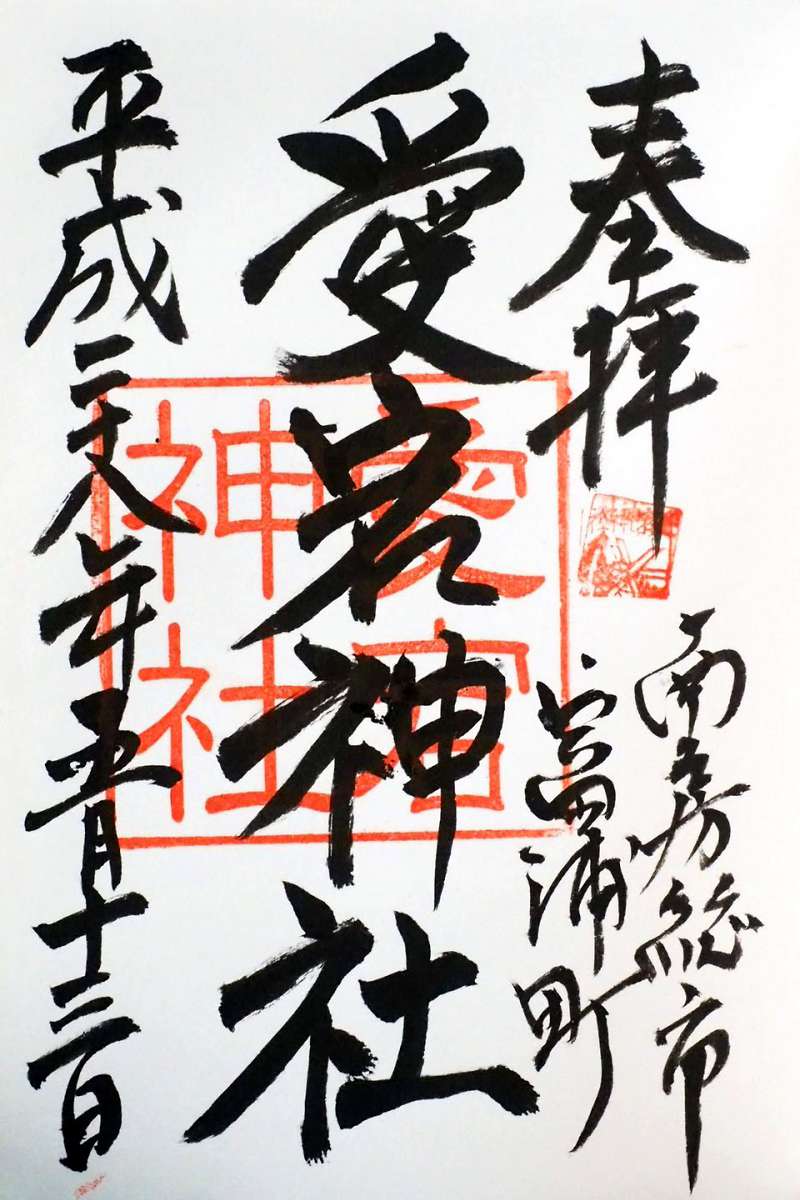 奉拝
南房総市
富浦町
愛宕神社
愛宕
神社
平成二十八年五月十三日